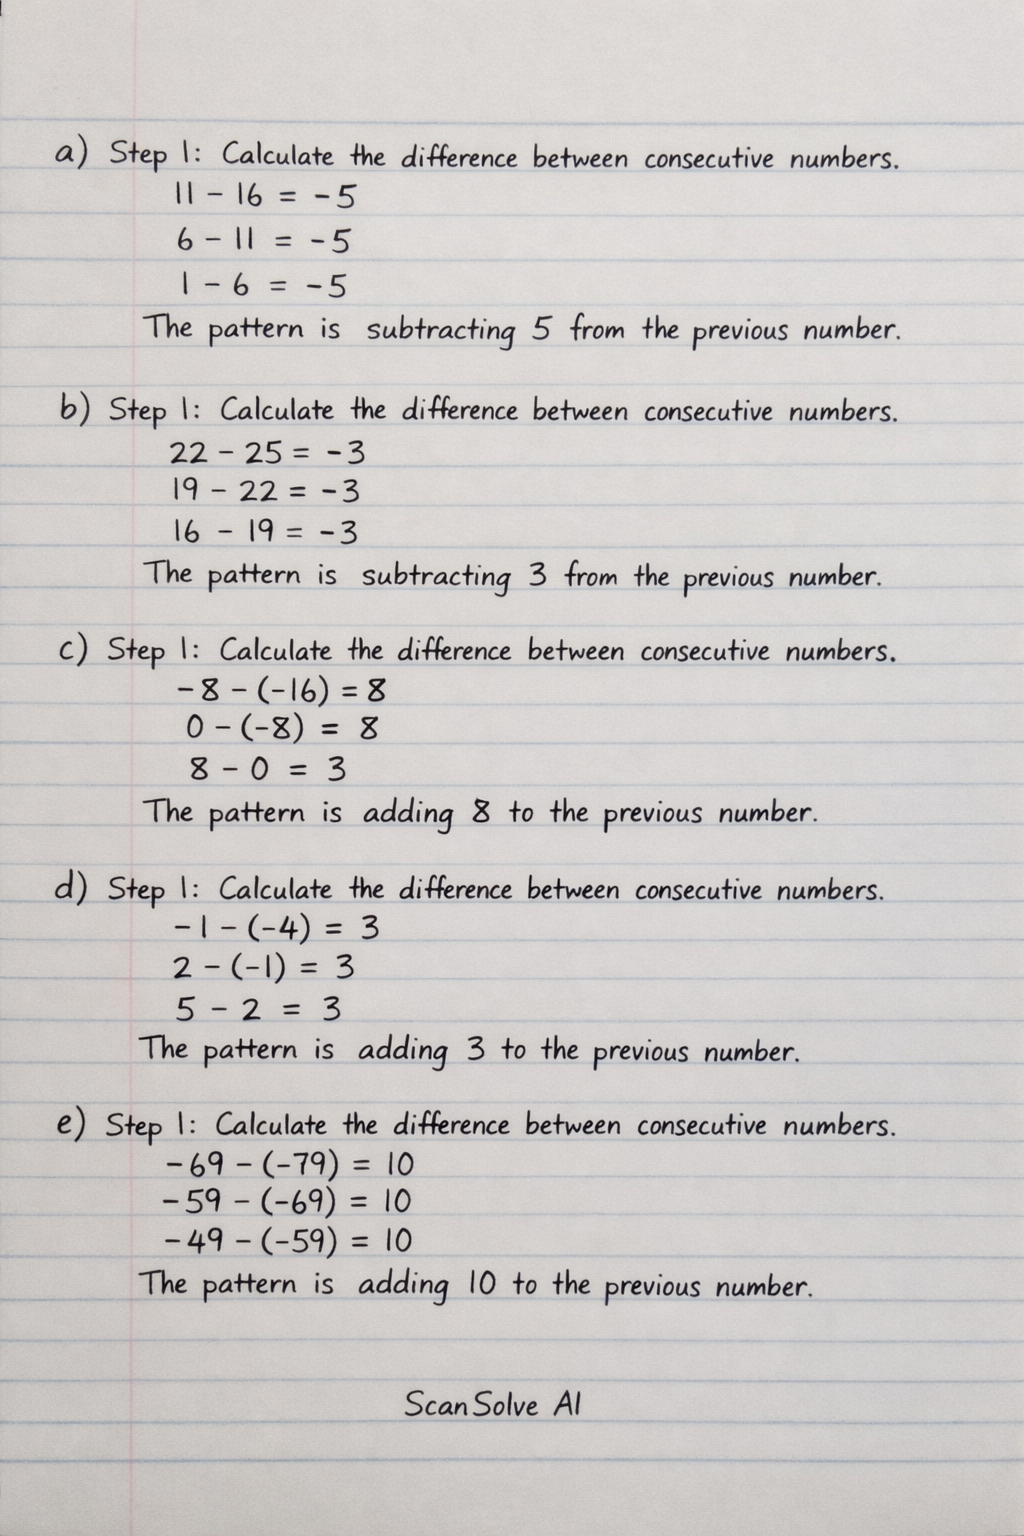 a) Step 1: Calculate the difference between consecutive numbers.
11 - 16 = -5
6 - 11 = -5
1 - 6 = -5
The pattern is subtracting 5 from the previous number.
b) Step 1: Calculate the difference between consecutive numbers.
22 - 25 = -3
19 - 22 = -3
16 - 19 = -3
The pattern is subtracting 3 from the previous number.
c) Step 1: Calculate the difference between consecutive numbers.
-8 - (-16) = 8
0 - (-8) = 8
8 - 0 = 3
The pattern is adding 8 to the previous number.
d) Step 1: Calculate the difference between consecutive numbers.
-1 - (-4) = 3
2 - (-1) = 3
5 - 2 = 3
The pattern is adding 3 to the previous number.
e) Step 1: Calculate the difference between consecutive numbers.
-69 - (-79) = 10
-59 - (-69) = 10
-49 - (-59) = 10
The pattern is adding 10 to the previous number.
ScanSolve AI